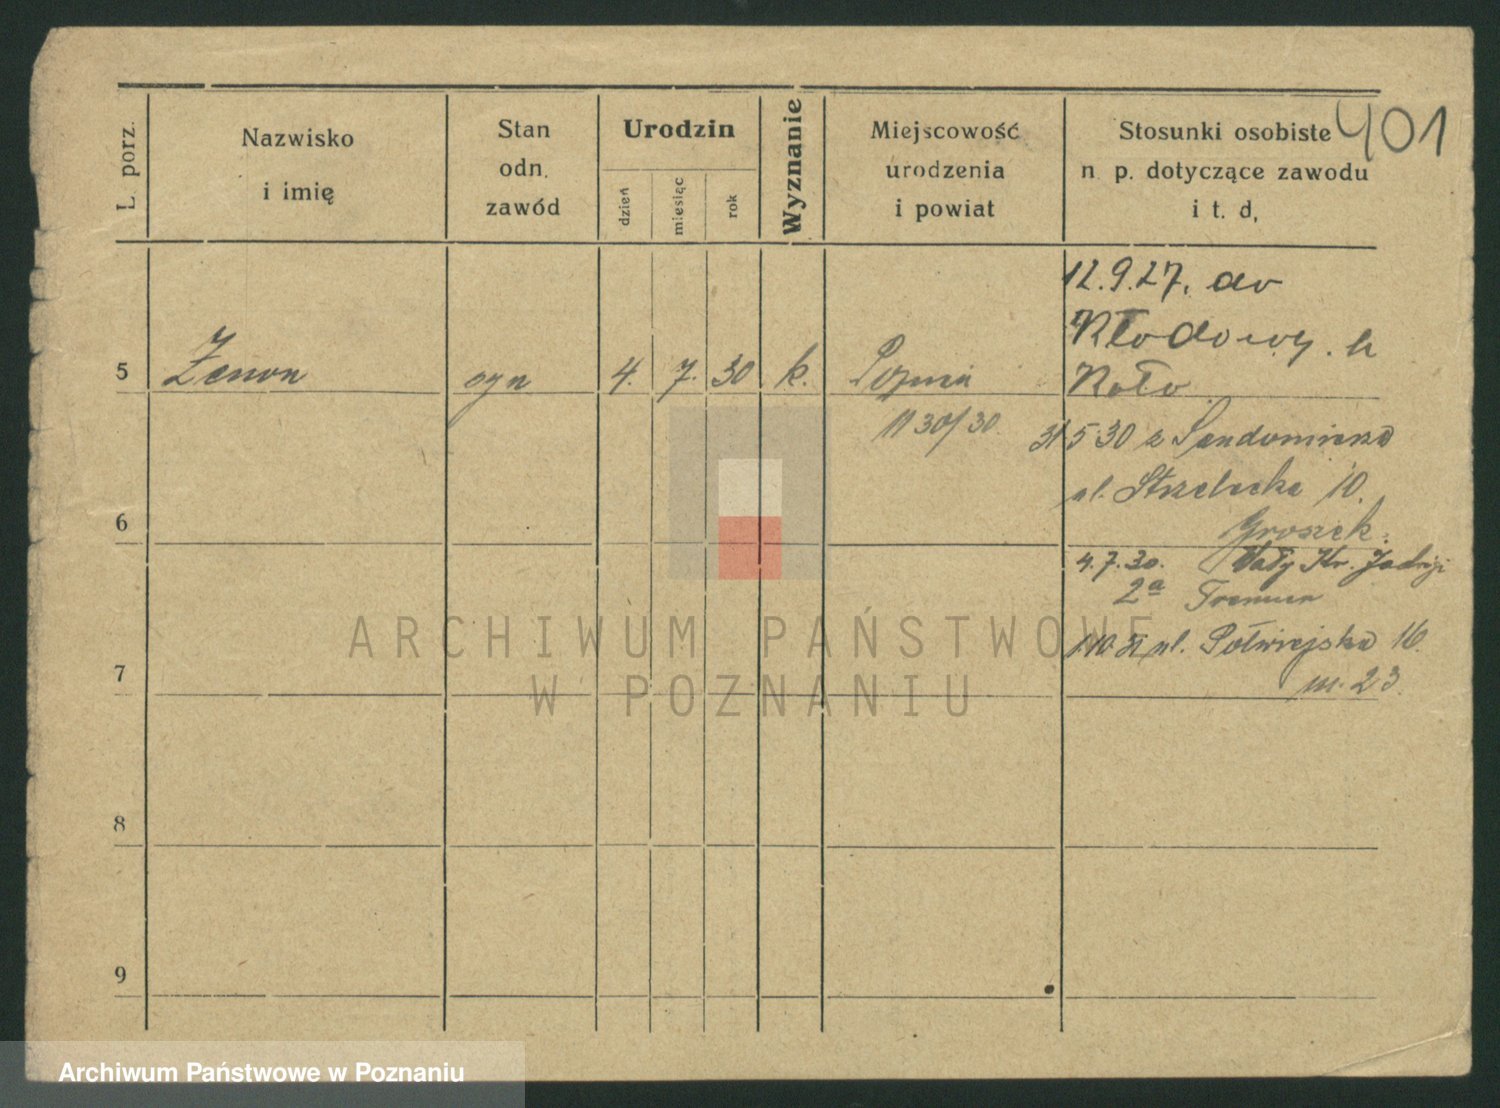 401
L. porz.
Nazwisko
i imię
Stan
odn.
zawód
Urodzin
dzień
miesiąc
rok
Wyznanie
Miejscowość
urodzenia
i powiat
Stosunki osobiste
n p. dotyczące zawodu
i t. d,
12.9.27. do
Kłodawy. 
Koło
5 Zenon syn 4. 7. 30 k.
1130/30
31 5 30 z Sandomierza
ul. Strzelecka 10.
6
Groszek.
4.7.30. Wały Kr. Jadwigi
2a
ul. Półwiejska 16.
m. 23.
7
8
9
ARCHIWUM PAŃSTWOWE
W POZNANIU
Archiwum Państwowe w Poznaniu